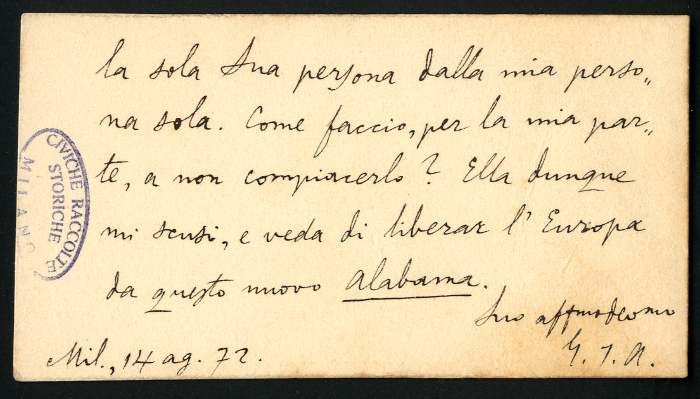 la sola Sua persona dalla mia perso„
na sola. Come faccio, per la mia par„
te, a non compiacerlo? Ella dunque
mi scusi, e veda di liberar l'Europa
da questo nuovo Alabama.
Suo affmo devmo
G. I. A.
Mil., 14 ag. 72.
CIVICHE RACCOLTE
STORICHE
MILANO